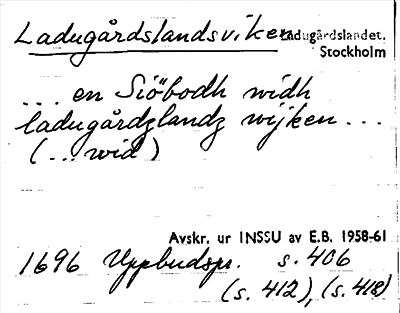 Ladugårdslandsviken Ladugårdslandet.
Stockholm
... en Siöbodh widh
ladugårdzlandz wijken ...
(... wid)
Avskr. ur INSSU av E.B. 1958-61
1696 Uppbudspr. s. 406
(s. 412), (s. 418)